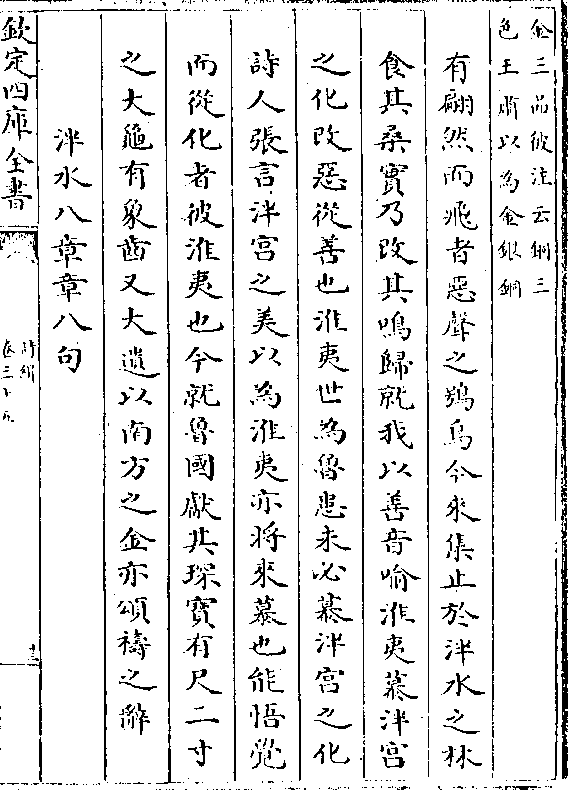 金三品彼注云銅三
色王肅以為金銀銅
有翩然而飛者惡聲之鴞鳥今來集止於泮水之林
食其桑實乃改其鳴歸就我以善音喻淮夷慕泮宮
之化改惡從善也淮夷世為魯患未必慕泮宮之化
詩人張言泮宮之美以為淮夷亦將來慕也能悟覺
而從化者彼淮夷也今就魯國獻其琛寶有尺二寸
之大龜有象齒又大遺以南方之金亦頌禱之辭
泮水八章章八句
欽定四庫全書
詩緝
卷三十五